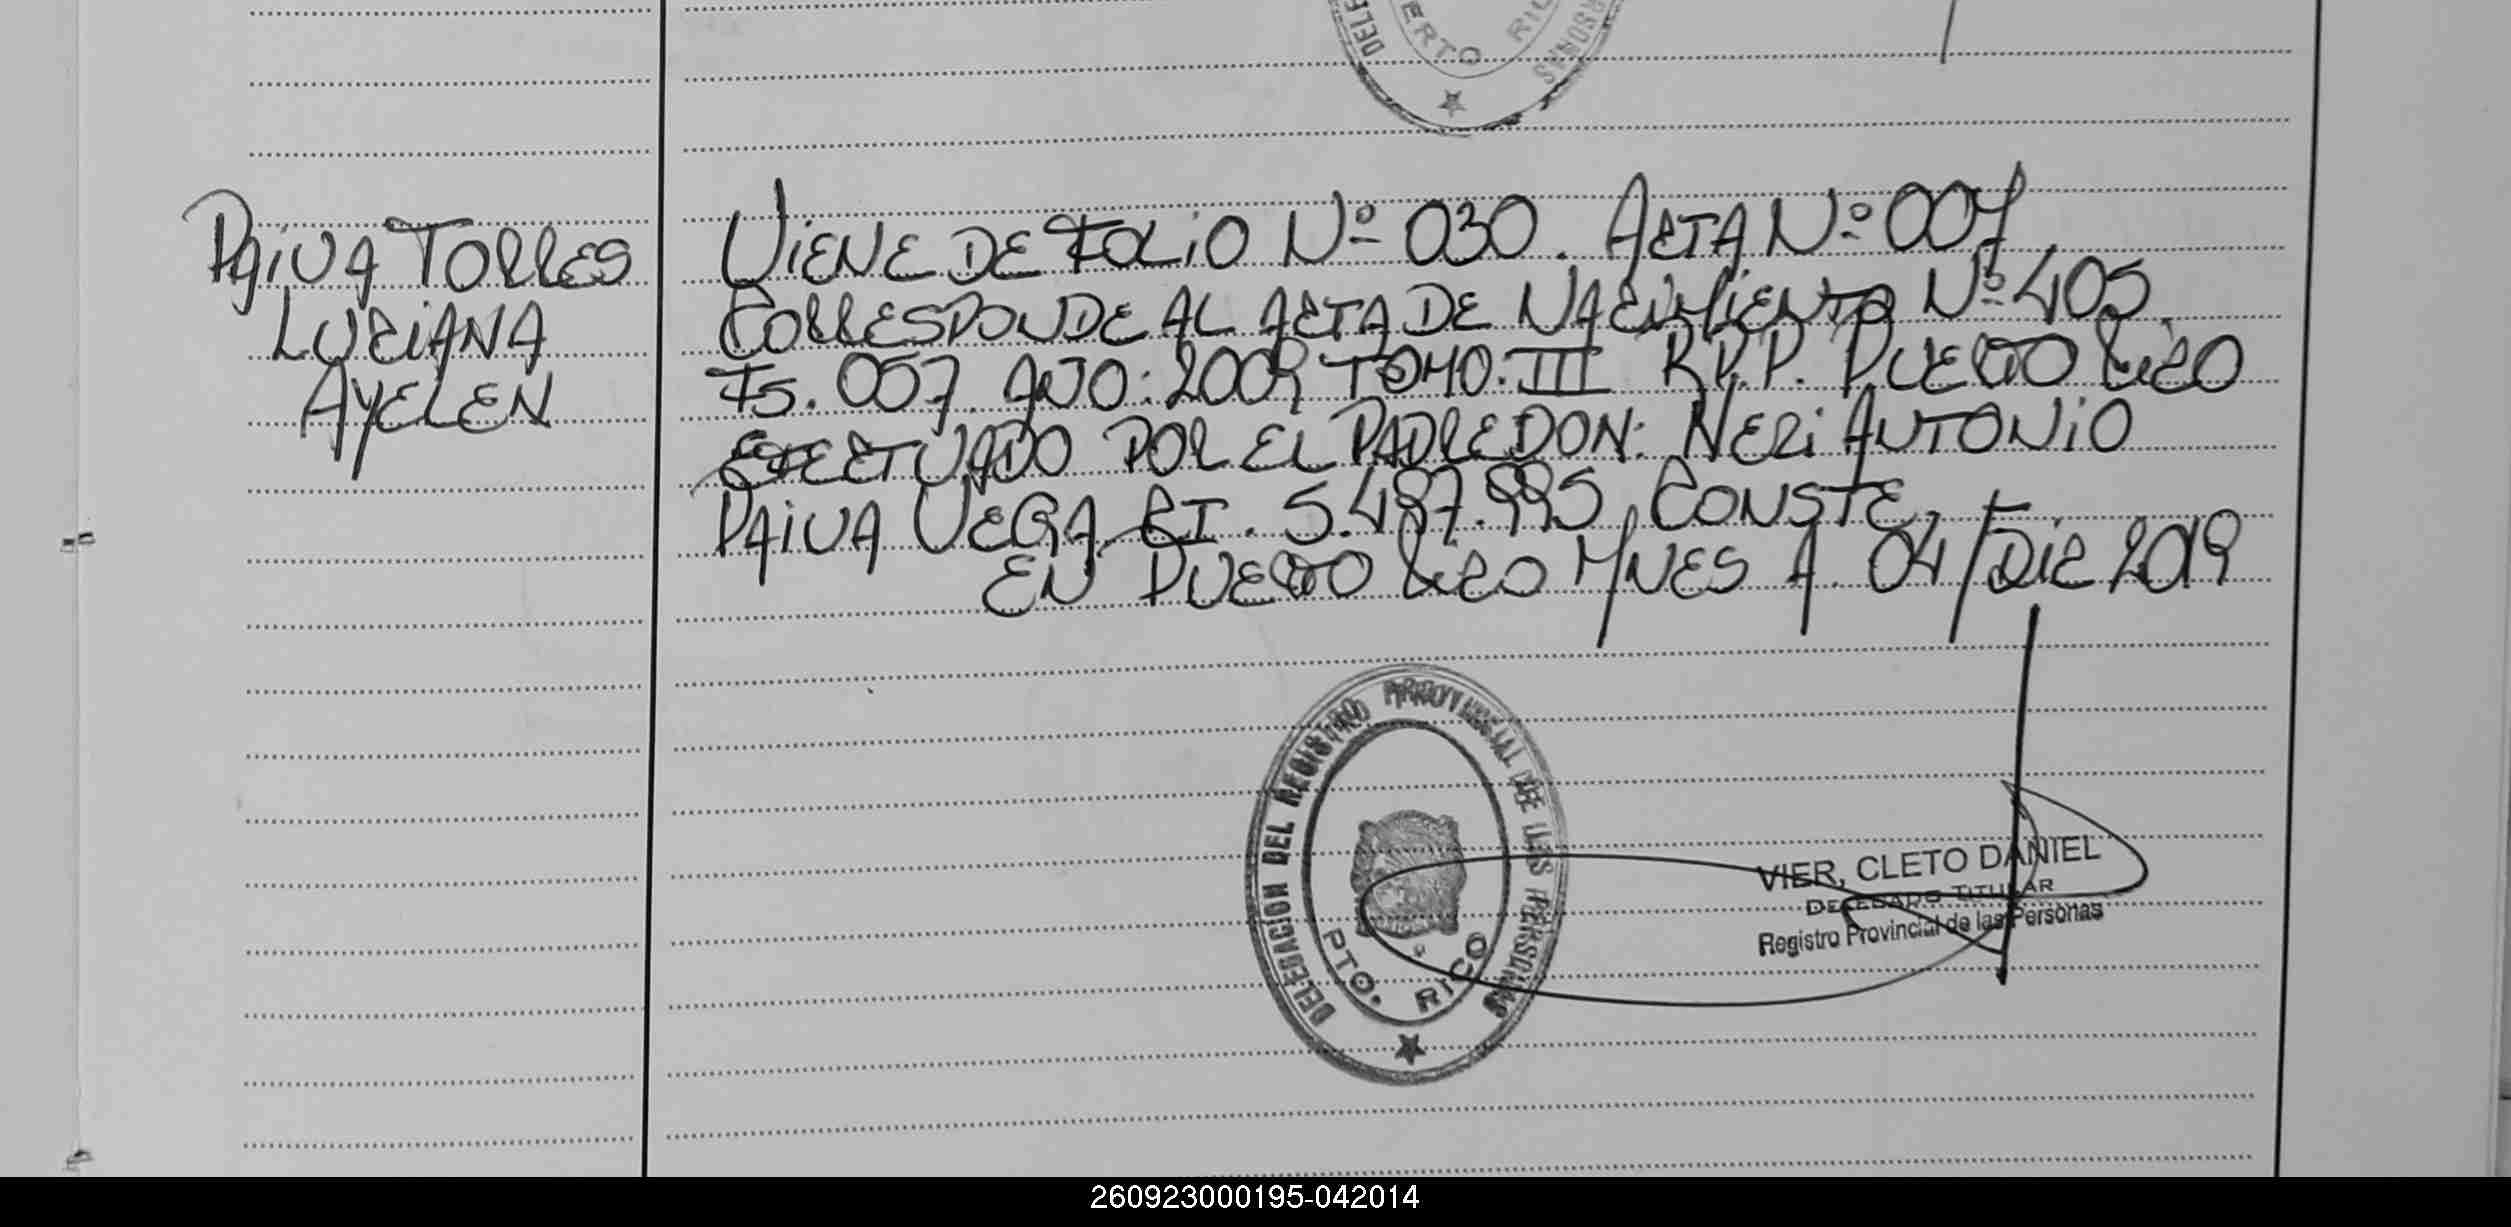 DELE
PERSONAS
PUERTO RICO
PAIVA TORRES
LUCIANA
AYELEN
VIENE DE FOLIO Nº 030. ACTA Nº 007.
CORRESPONDE AL ACTA DE NACIMIENTO Nº 405.
Fs. 057. AÑO: 2009 TOMO: III R.P.P. PUERTO RICO
EFECTUADO POR EL PADRE DON: NERI ANTONIO
PAIVA VEGA CI. 5.487.995 CONSTE.
EN PUERTO RICO MNES A 04/DIC 2019
DELEGACION DEL REGISTRO PROVINCIAL DE LAS PERSONAS
PTO. RICO
VIER, CLETO DANIEL
DELEGADO TITULAR
Registro Provincial de las Personas
260923000195-042014